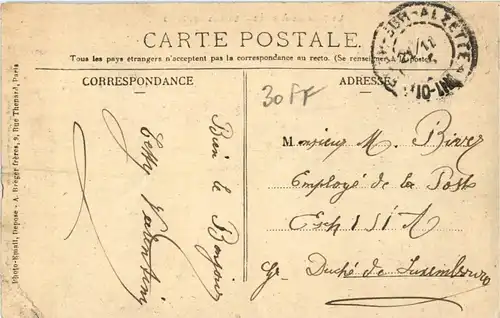 CARTE POSTALE
Tous les pays étrangers n'acceptent pas la correspondance au recto. (Se renseigner à la poste)
CORRESPONDANCE
ADRESSE
30 FF
SUR-ALZETTE
Bien le Bonjour
Valentini
Monsieur M.
Employé de la Poste
Esch s/A
Gr. Duché de Luxembourg
Photo-Email, Depose - A. Breger frères, 9, Rue Thenard, Paris